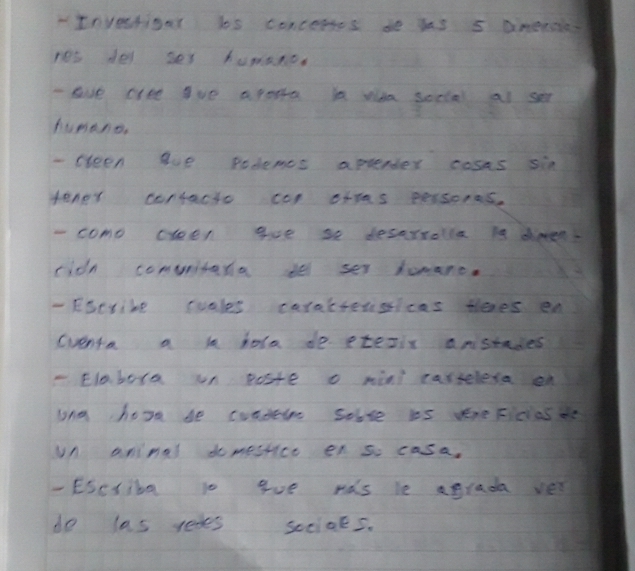 - Investigar los conceptos de las 5 Dimensio-
nes del ser humano.
- que cree que aporta la vida social al ser
humano.
- creen que podemos aprender cosas sin
tener contacto con otras personas.
- como creen que se desarrolla la dimen-
ción comunitaria del ser humano.
- Escribe cuales características tienes en
cuenta a la hora de elegir amistades
- Elabora un poste o mini cartelera en
una hoja de cuaderno sobre los veneficios de
un animal domestico en su casa.
- Escriba lo que más le agrada ver
de las redes sociaes.